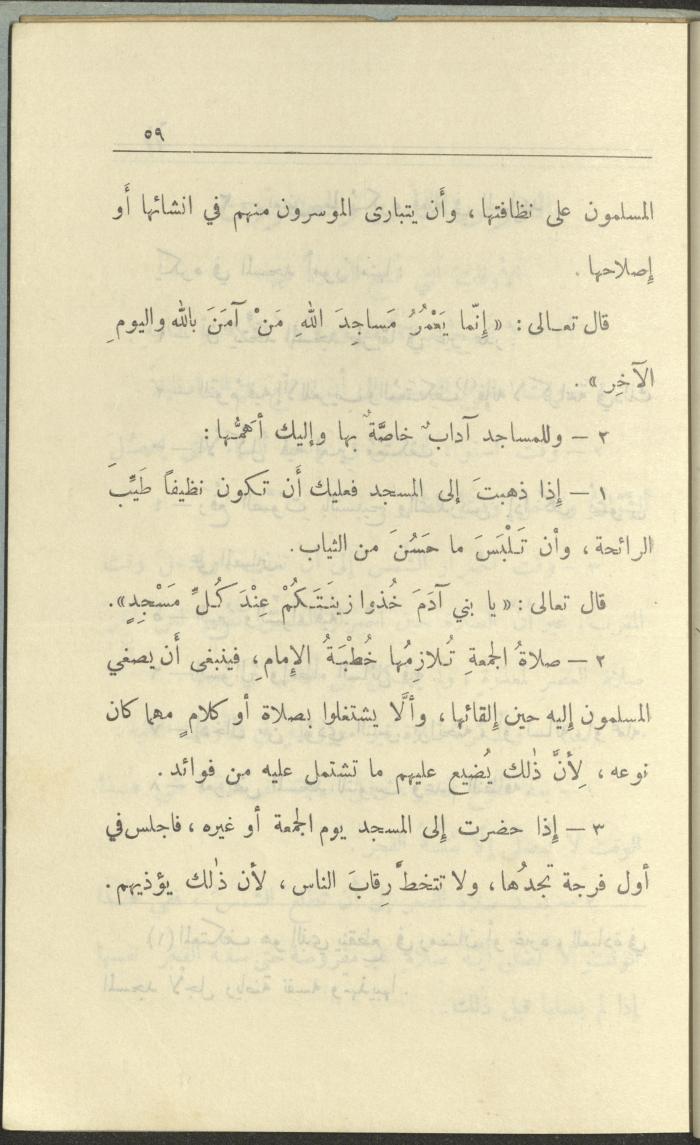 ٥٩
المسلمون على نظافتها ، وأَن يتبارى الموسرون منهم في انشائها أَو
إِصلاحها .
قال تعـالى : « إِنّما يَعْمُرُ مَساجِدَ اللهِ مَنْ آمَنَ بالله واليومِ
الآخِرِ » .
٢ – وللمساجد آدابٌ خاصَّةٌ بها وإليك أهَمَُّها :
١ – إِذا ذهبتَ إلى المسجد فعليك أَن تكون نظيفاً طَيِّبَ
الرائحة ، وأن تَلْبَسَ ما حَسُنَ من الثياب .
قال تعالى : « يا بني آدَمَ خُذوا زينَتَكُمْ عِنْدَ كُلِّ مَسْجِدٍ» .
٢ – صلاةُ الجمعةِ تُلازِمُها خُطْبَةُ الإِمامِ ، فينبغى أَن يصغي
المسلمون إليه حين إلقائها ، وأَلَّا يشتغلوا بصلاة أو كلامٍ مهما كان
نوعه ، لِأَنَّ ذٰلك يُضيع عليهم ما تشتمل عليه من فوائد .
٣ – إِذا حضرت إِلى المسجد يوم الجمعة أو غيره ، فاجلس في
أول فرجة تجدُها ، ولا تتخطَّ رِقابَ الناس ، لأن ذٰلك يؤذيهم .